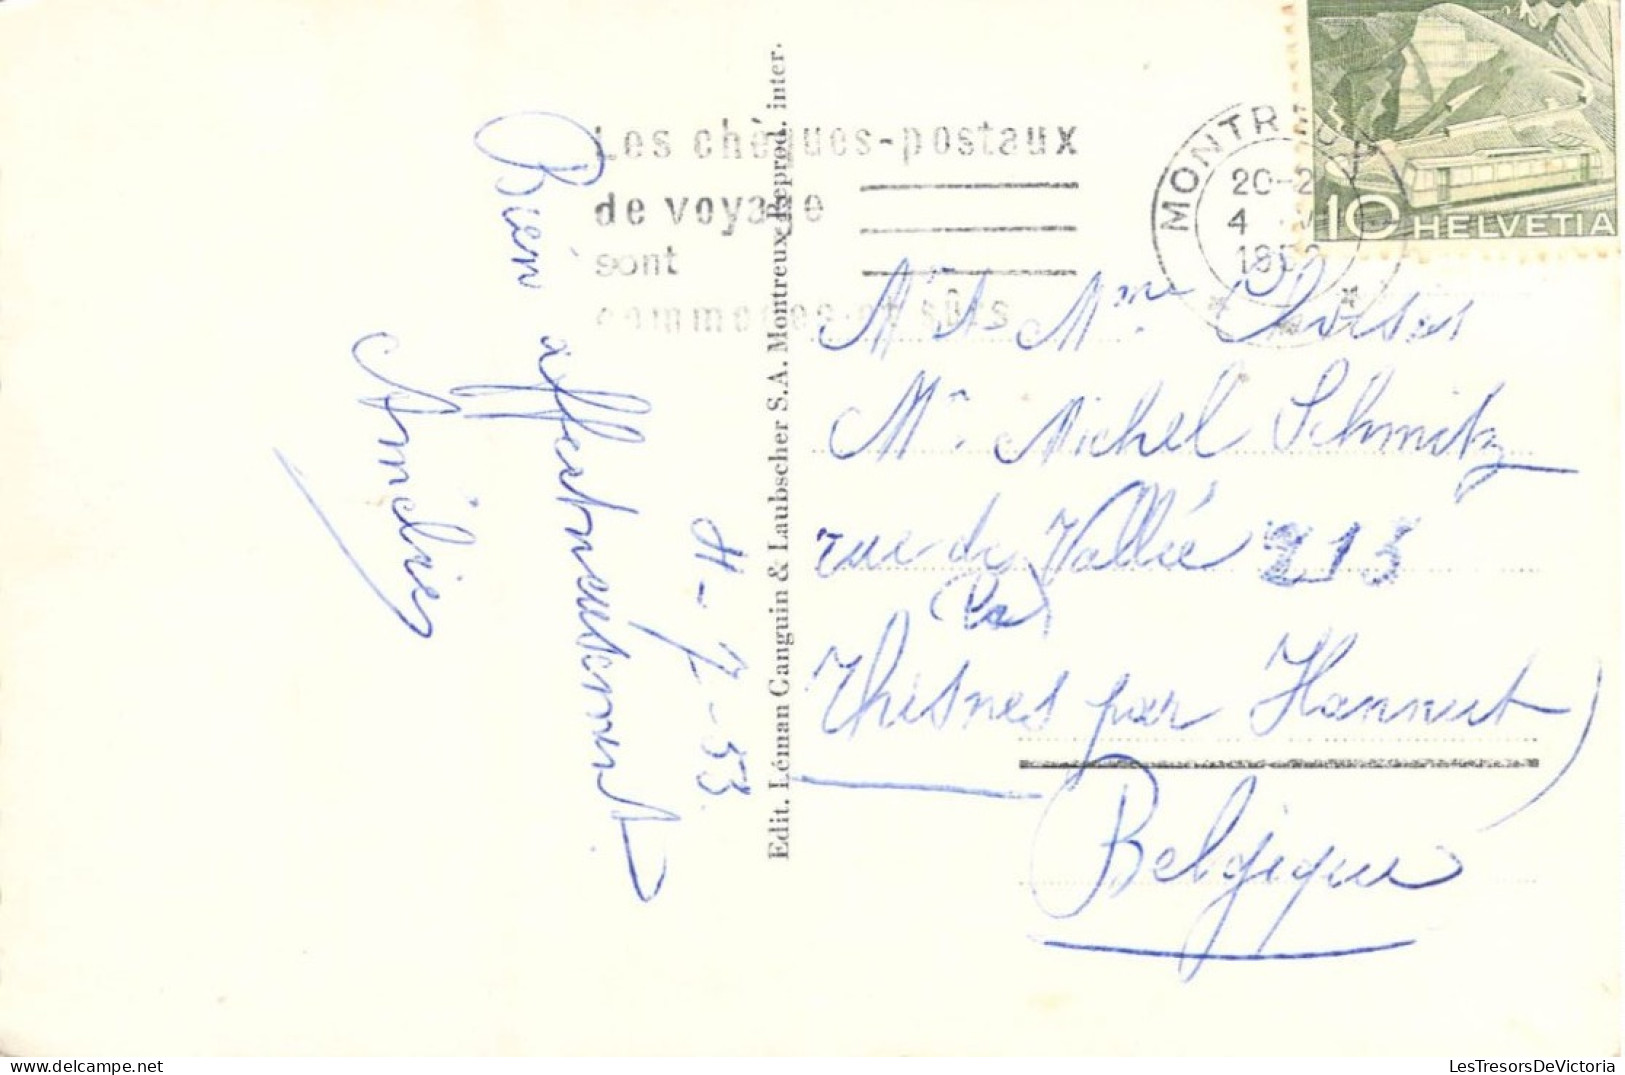 Bien affectueusement
Amélie
4-7-53
Edit. Léman Canguin & Laubscher S.A. Montreux Reprod. inter.
Les chèques-postaux
de voyage
sont
commodes et sûrs
MONTREUX
20-2
4
195
10 HELVETIA
Mr & Mme
Mr Michel Schmitz
rue de Vallée 213
(la)
Thisnes par Hannut
Belgique
LesTresorsDeVictoria